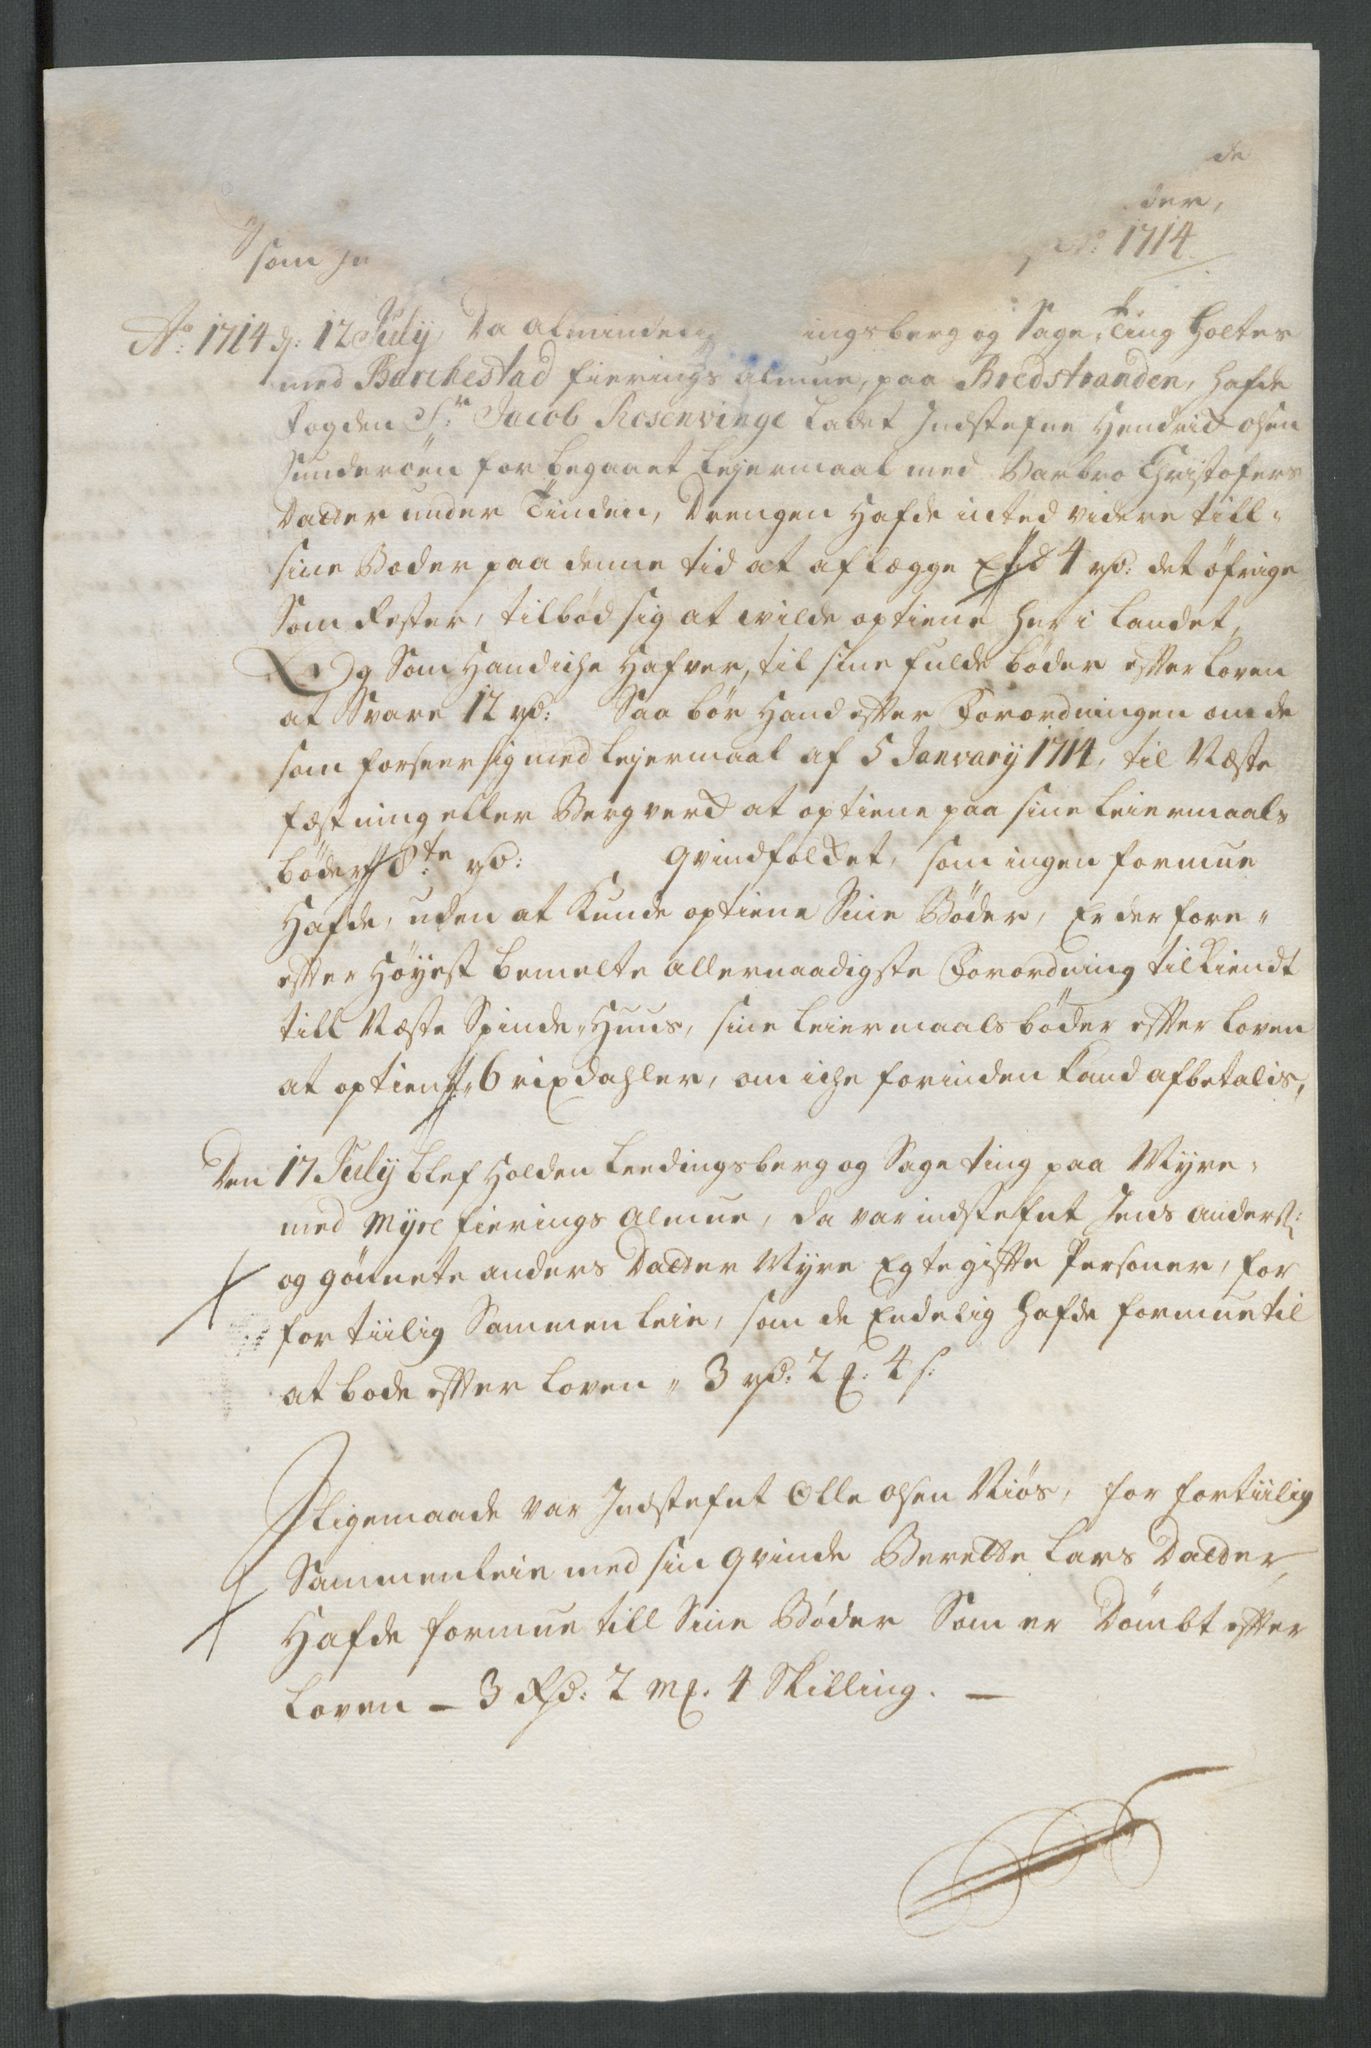 de
der,
som
Ao: 1714
Ao: 1714 d: 12 July Da Alminde ingsberg og Sage-Ting holtes
med Barchestad fierings almue, paa Bredstranden, hafde
fogden Sr: Jacob Rosenvinge ladet Indstefne Hendrick olsen
Sunderöen for begaaet lejermaal med Barbro Christofers
Datter under Tinden, Drengen hafde inted videre till-
sine Bøder paa denne tid at aflegge End 4 rd: det öfrige
Som Rester, tilbød sig at wilde optiene her i landet,
Og Som Hand iche hafver, til sine fulde bøder efter loven
at Svare 12 rd: Saa bör Hand efter Forordningen om de
som forseer sig med lejermaal af 5 Janvarij 1714, til Næste
fæstning eller Bergverck at optiene paa sine leiermaals
bøder 8te rd: Qvindfolcket, som ingen formue
Hafde, uden at Kunde optiene Sine Bøder, Er derfore-
efter Høyest bemelte allernaadigste Forordning tilkiendt
till Næste Spinde-Huus, sine leiermaals bøder efter loven
at optiene, 6 rixdahler, om iche forinden kand afbetalis,
Den 17 July blef Holden Leedingsberg og Sageting paa Myre-
med Myre fierings Almue, da var indstefnt Jens anders:
og gönnete anders Datter Myre Egtegifte Personer, for
for tiilig Sammenleie, som de Endelig hafde formue til
at bøde efter loven " 3 rd: 2 : 4 s:
Ligemaade var Indstefnt Olle olsen Niös, for for tiilig
Sammenleie med sin qvinde Berette Lars Datter,
Hafde formue till Sine Bøder Som er Dömbt efter
Loven - 3 Rd: 2 m. 4 Skilling. -